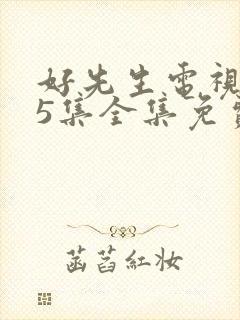 好先生電視
5集全集免費
菡萏紅妝